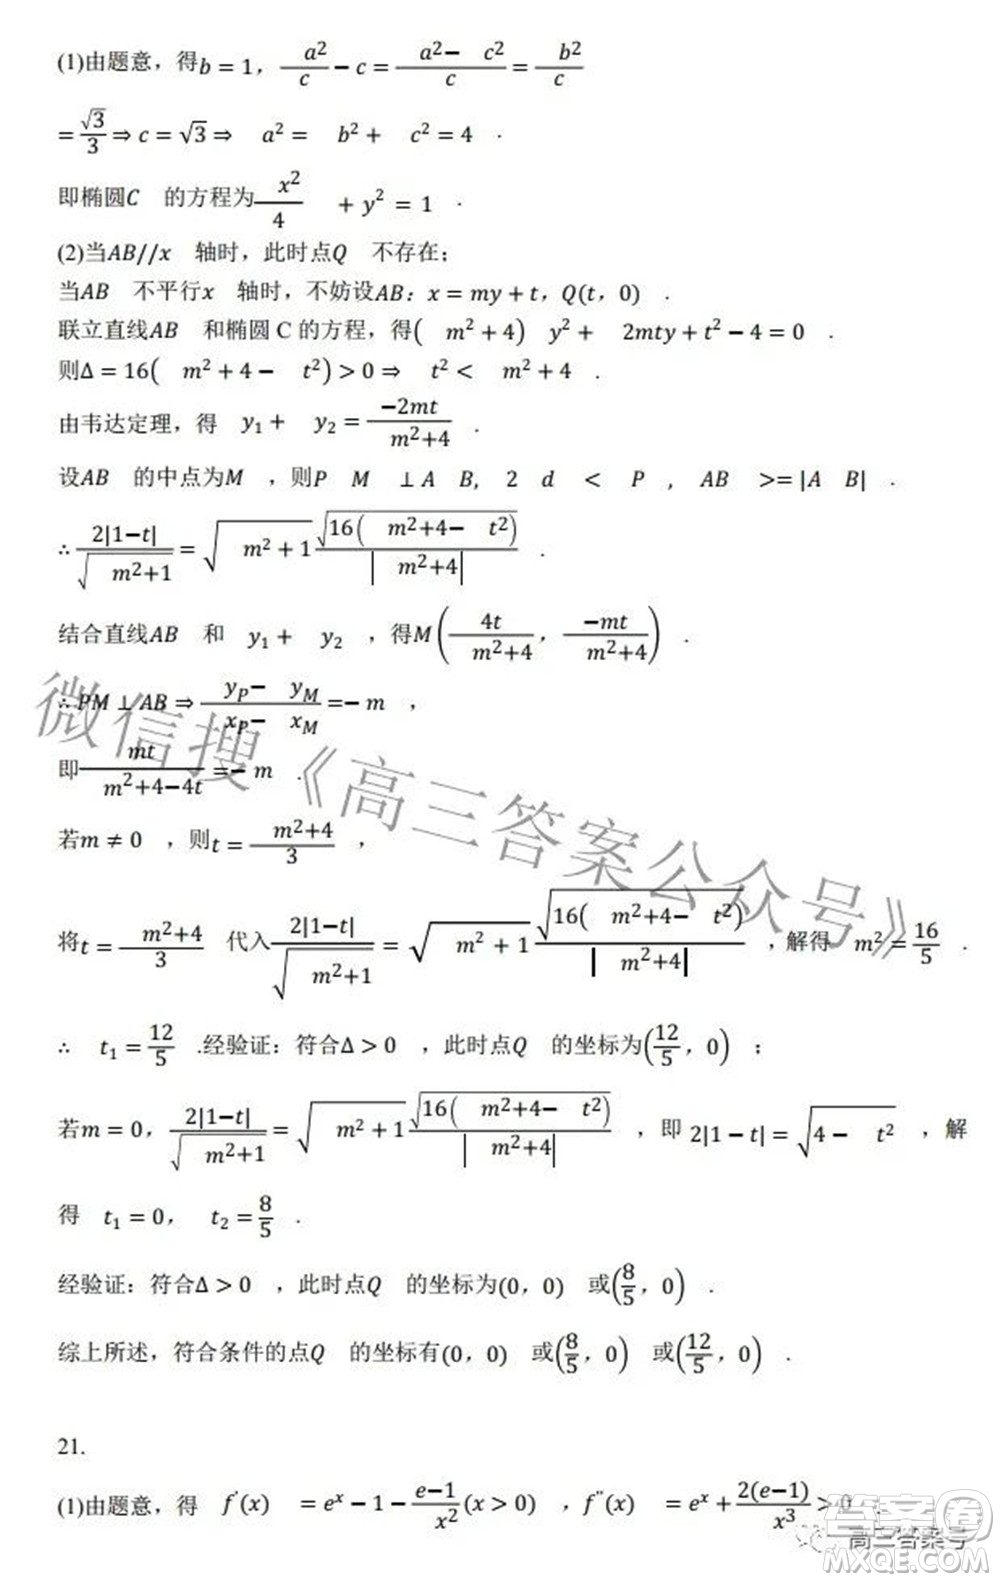 (1)由题意，得b=1，a²/c−c=(a²−c²)/c=b²/c
=√3/3⇒c=√3⇒ a²= b²+ c²=4 .
即椭圆C 的方程为x²/4 +y²=1 .
(2)当AB//x 轴时，此时点Q 不存在；
当AB 不平行x 轴时，不妨设AB：x=my+t，Q(t，0) .
联立直线AB 和椭圆 C 的方程，得( m²+4) y²+ 2mty+t²−4=0 .
则Δ=16( m²+4− t²)>0⇒ t²< m²+4 .
由韦达定理，得 y₁+ y₂=−2mt/(m²+4) .
设AB 的中点为M ，则P M ⊥A B, 2 d < P , AB >=|A B| .
∴2|1−t|/√(m²+1)=√(m²+1)√(16(m²+4−t²))/|m²+4| .
结合直线AB 和 y₁+ y₂ ，得M(4t/(m²+4)，−mt/(m²+4)) .
∴PM⊥AB⇒(y_P− y_M)/(x_P− x_M)=−m ，
即mt/(m²+4−4t)=−m .
若m≠0 ，则t=(m²+4)/3 ，
将t=(m²+4)/3 代入2|1−t|/√(m²+1)=√(m²+1)√(16(m²+4−t²))/|m²+4| ，解得 m²=16/5 .
∴ t₁=12/5 .经验证：符合Δ>0 ，此时点Q 的坐标为(12/5，0) ；
若m=0，2|1−t|/√(m²+1)=√(m²+1)√(16(m²+4−t²))/|m²+4| ，即 2|1−t|=√(4−t²) ，解
得 t₁=0， t₂=8/5 .
经验证：符合Δ>0 ，此时点Q 的坐标为(0，0) 或(8/5，0) .
综上所述，符合条件的点Q 的坐标有(0，0) 或(8/5，0) 或(12/5，0) .
21.
(1)由题意，得 f'(x) =eˣ−1−(e−1)/x²(x>0) ，f''(x) =eˣ+2(e−1)/x³>0
微信搜《高三答案公众号》
答案圈
高三答案号
MXQE.COM